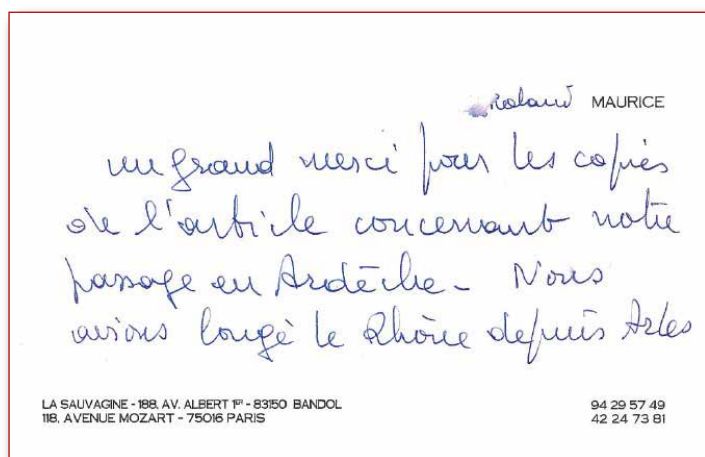 Roland MAURICE
un grand merci pour les copies
de l'article concernant notre
passage en Ardèche - Nous
avions longé le Rhône depuis Arles
LA SAUVAGINE - 188, AV. ALBERT 1er - 83150 BANDOL 94 29 57 49
118, AVENUE MOZART - 75016 PARIS 42 24 73 81